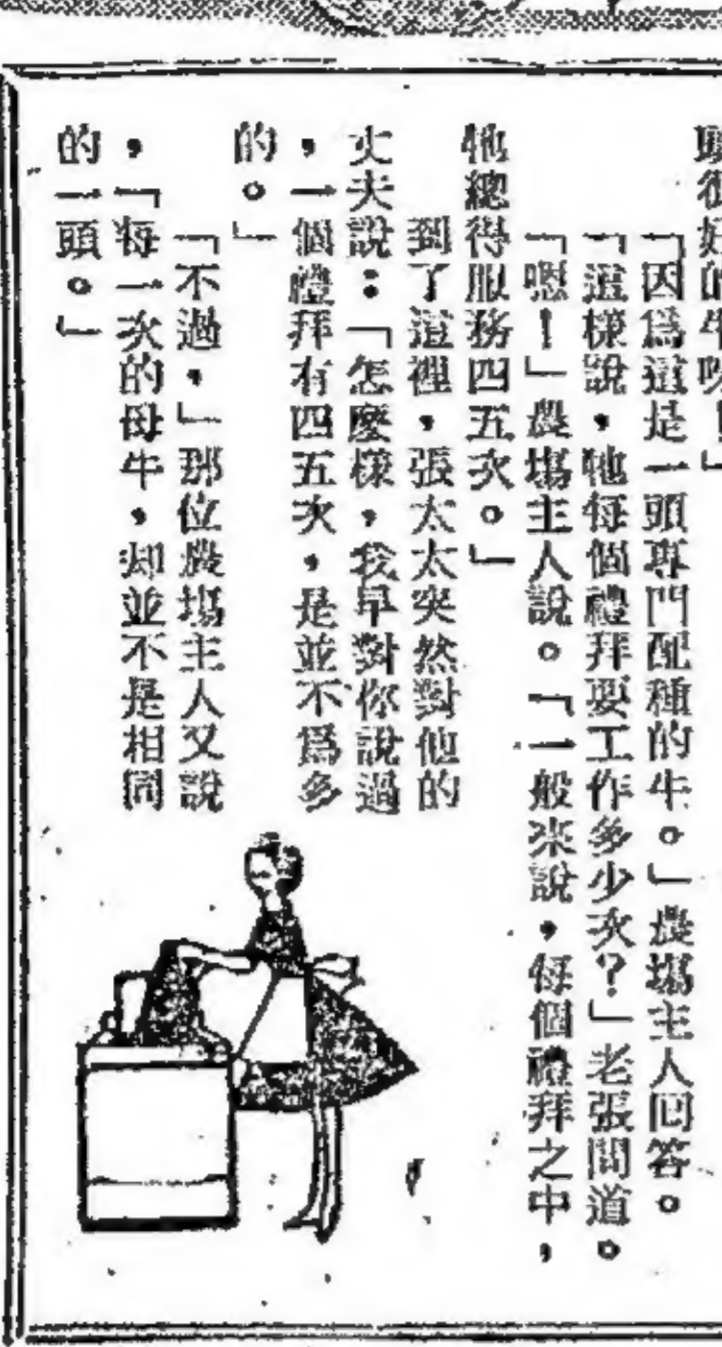 頭很好的牛呀！」
「因爲這是一頭專門配種的牛。」農場主人回答。
「這樣說，牠每個禮拜要工作多少次？」老張問道。
「嗯！」農場主人說。「一般來說，每個禮拜之中，
牠總得服務四五次。」
到了這裡，張太太突然對他的
丈夫說：「怎麼樣，我早對你說過
，一個禮拜有四五次，是並不爲多
的。」
「不過，」那位農場主人又說
，「每一次的母牛，却並不是相同
的一頭。」